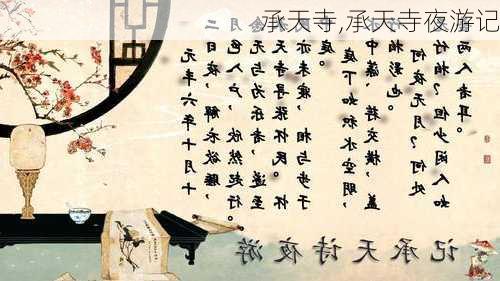 承天寺,承天寺夜游记
元丰六年十月十
二日夜,解衣欲睡,
月色入户,欣然起行。
念无与为乐者,遂至
承天寺寻张怀民。怀
民亦未寝,相与步于
中庭。
庭下如积水空明,
水中藻、荇交横,盖
竹柏影也。
何夜无月?何处
无竹柏?但少闲人如
吾两人者耳。
记承天诗夜游